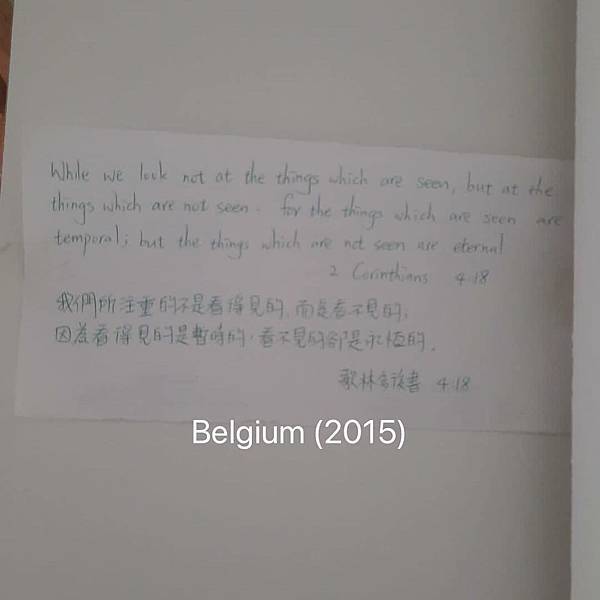 While we look not at the things which are seen, but at the
things which are not seen. for the things which are seen are
temporal; but the things which are not seen are eternal
2 Corinthians 4:18
我們所注重的不是看得見的,而是看不見的;
因為看得見的是暫時的,看不見的卻是永恆的.
歌林多後書 4:18
Belgium (2015)